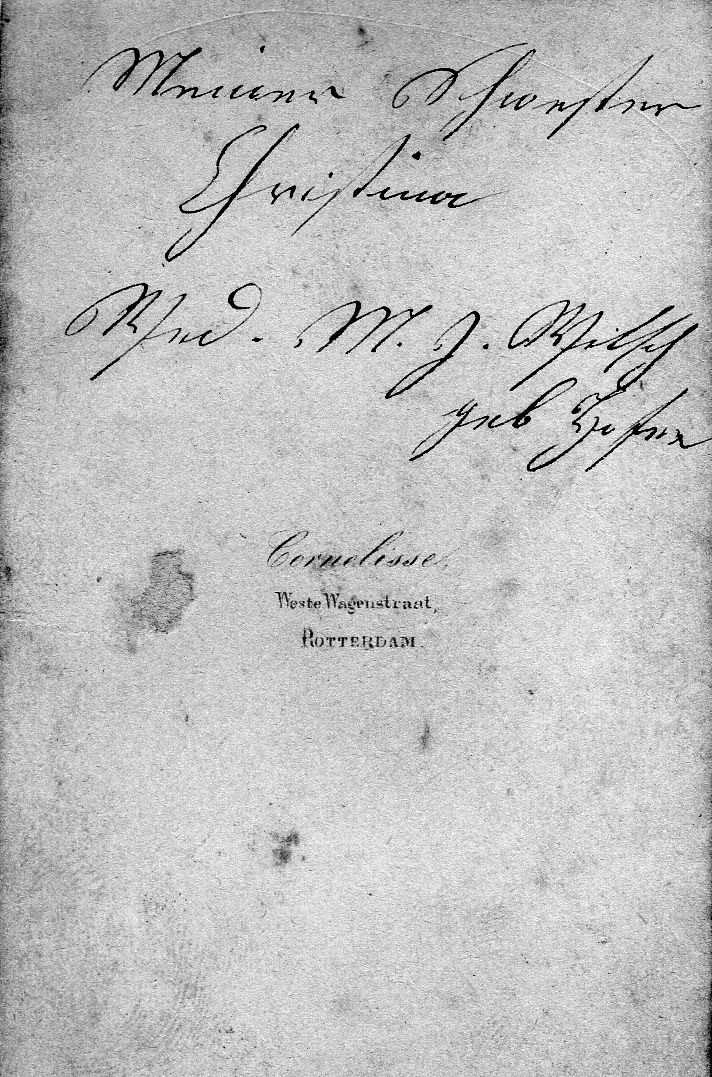 Meiner Schwester
Christina
Wed. M. J. Wilsch
geb
Cornelisse,
Weste Wagenstraat,
ROTTERDAM.